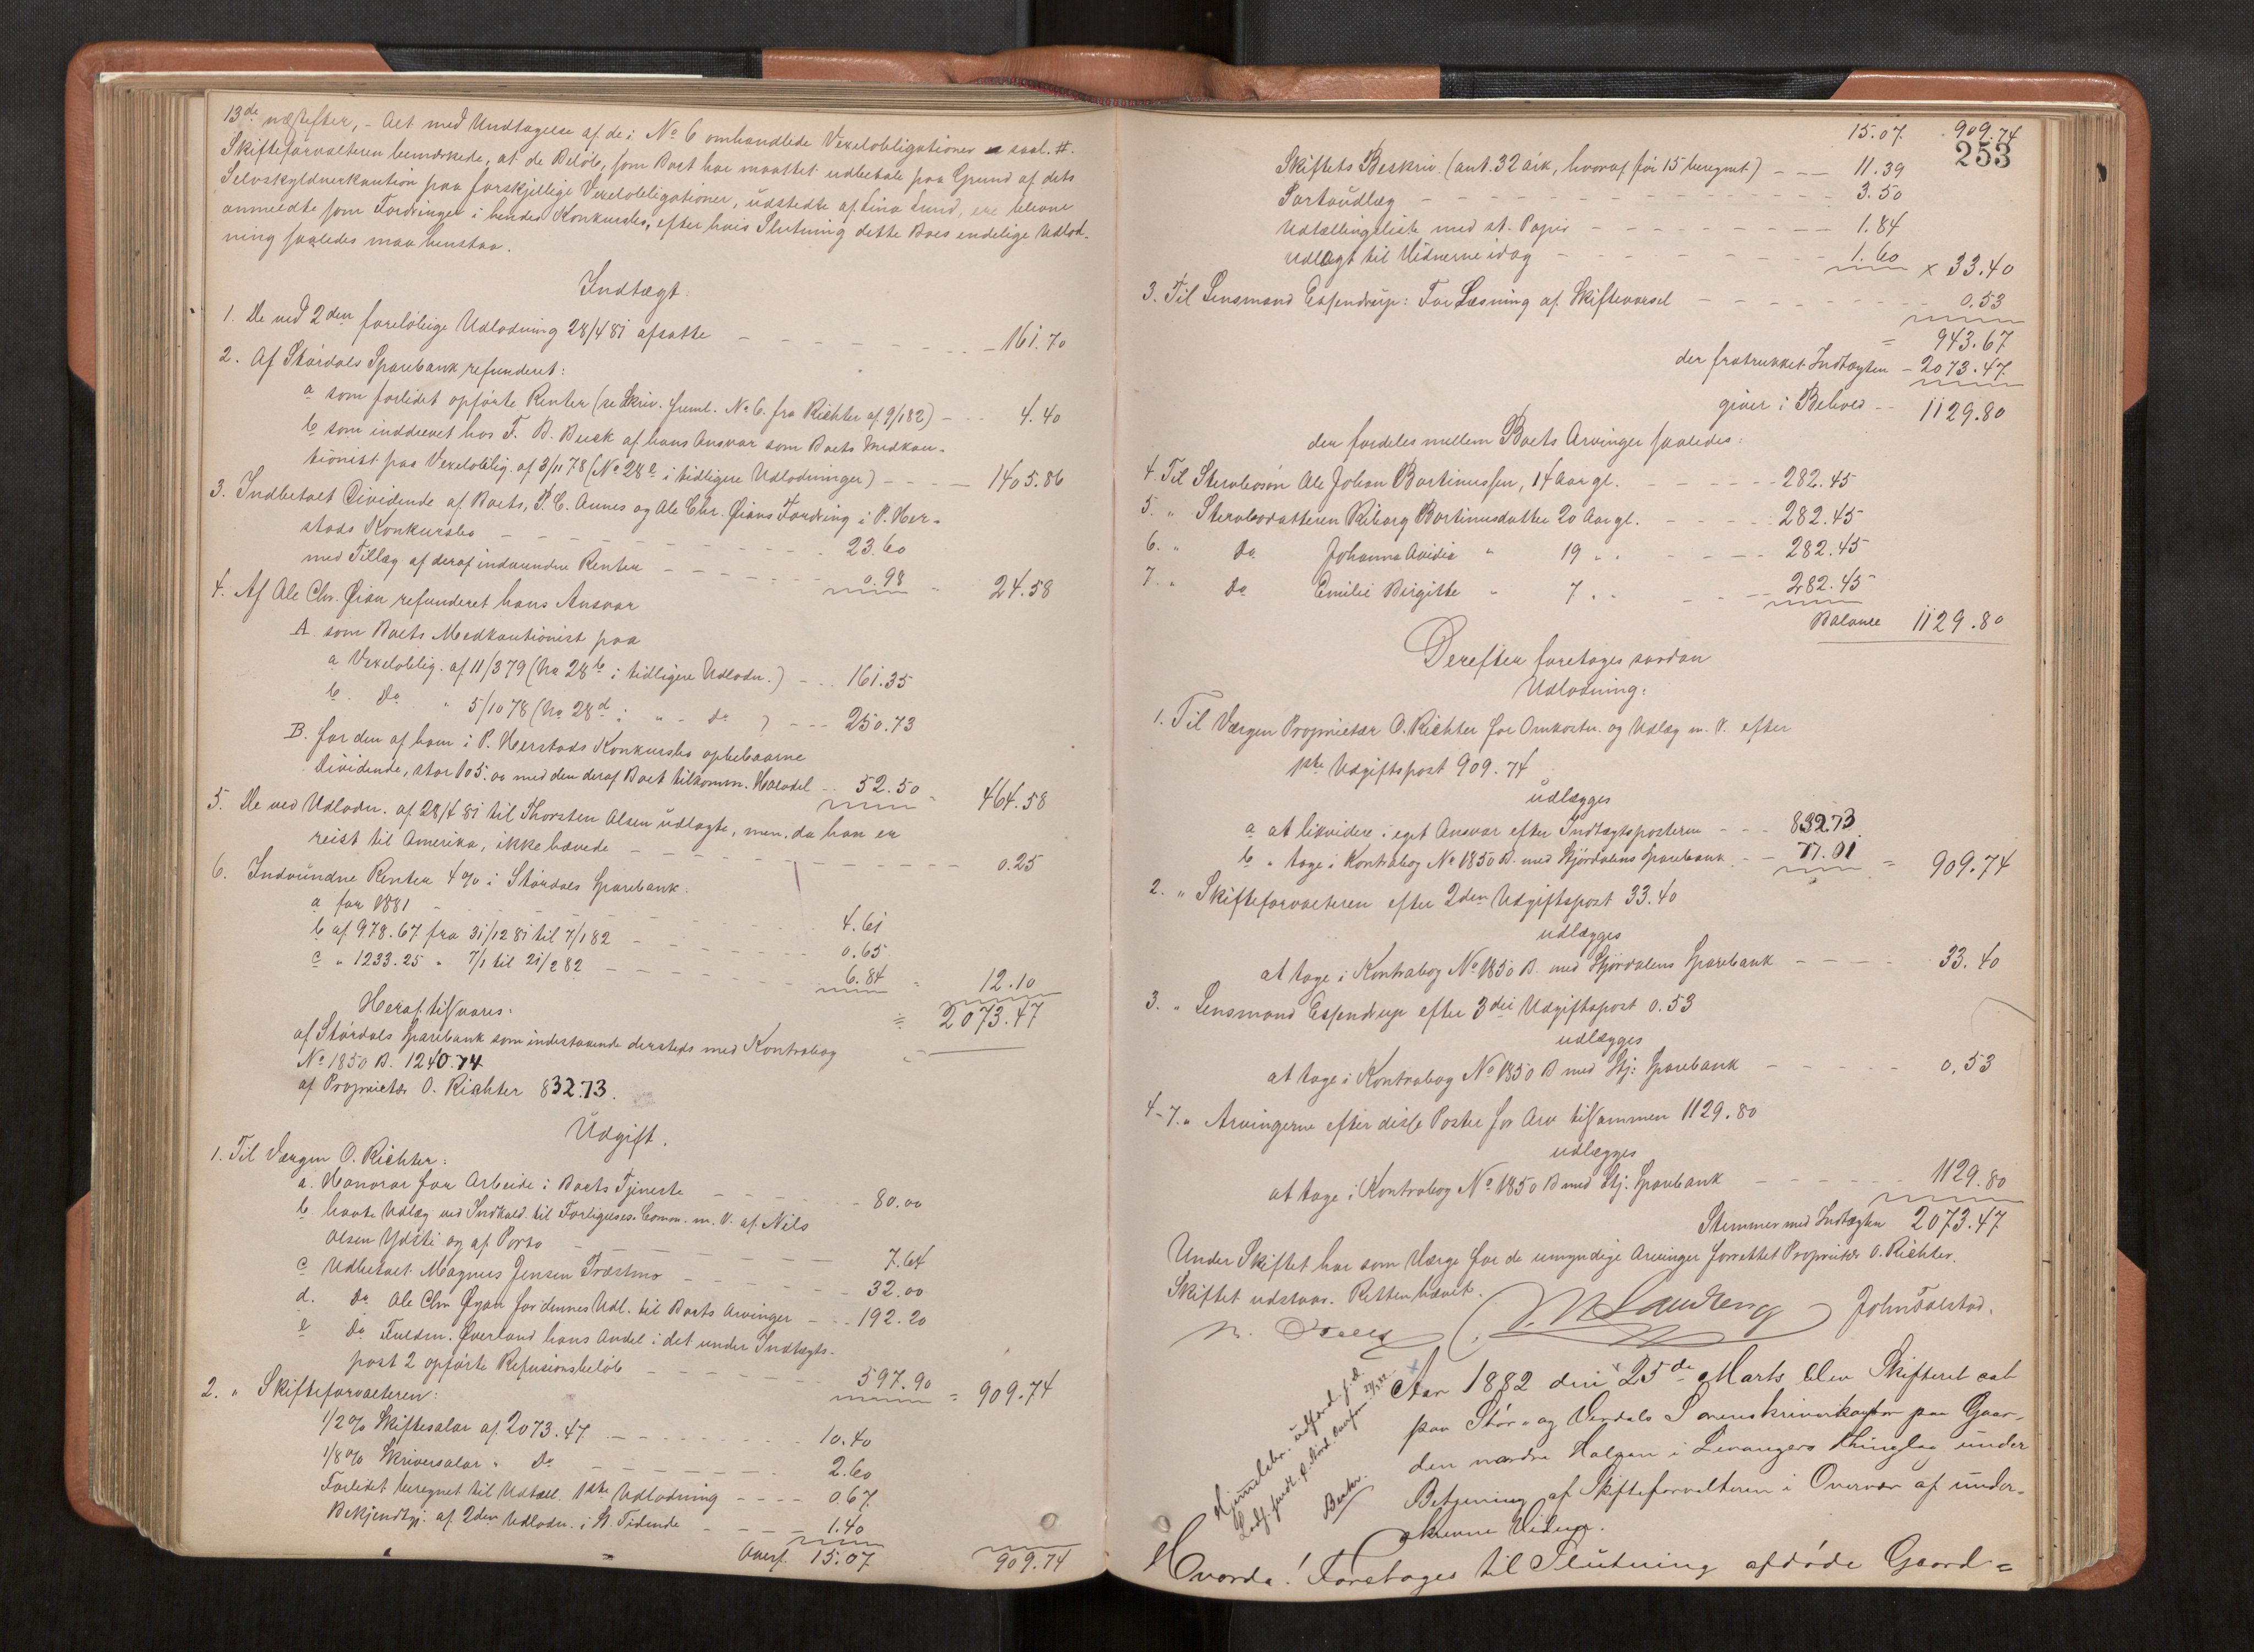 13de næstefter, – Alt med Undtagelse af de i No 6 omhandlede Vexelobligationer saal. #.
Skifteforvalteren bemærkede, at de Beløb, som Boet har maattet udbetale paa Grund af dets
Selvskyldnerkaution paa forskjellige Vexelobligationer, udstedte af Lina Lund, ere blevne
anmeldte som Fordringer i hendes Konkursbo, efter hvis Slutning dette Boes endelige Udlod-
ning saaledes maa henstaa.
Indtægt:
1. De ved 2den foreløbige Udlodning 28/4 81 afsatte – – – 161.70
2. Af Størdals Sparebank refunderet:
a som forlidet opførte Renter (se Skriv. freml. No 6. fra Richter af 9/1 82) – – 4.40
b som inddrevet hos T. B. Busk af hans Ansvar som Boets Medkau-
tionist paa Vexeloblig. af 3/11 78 (No 28a i tidligere Udlodninger) – – – 1405.86
3. Indbetalt Dividende af Boets, P. C. Aunes og Ole Chr. Øians Fordring i P. Her-
stads Konkursbo – – – 23.60
med Tillæg af deraf indvundne Renter – – – 0.98 = 24.58
4. Af Ole Chr. Øian refunderet hans Ansvar
A. som Boets Medkautionist paa
a Vexeloblig. af 11/3 79 (No 28b i tidligere Udlodn.) – – 161.35
b. Do " 5/10 78 (No 28d i " – do ) – – – 250.73
B. for den af ham i P. Herstads Konkursbo oppebaarne
Dividende, stor 105.00 med den deraf Boet tilkomm. Halvdel – 52.50 = 464.58
5. De ved Udlodn. af 28/4 81 til Thorsten Olsen udlagte, men, da han er
reist til Amerika, ikke hævede – – – 0.25
6. Indvundne Renter 4% i Størdals Sparebank:
a for 1881 – – – 4.61
b af 978.67 fra 31/12 81 til 7/1 82 – – – 0.65
c " 1233.25 " 7/1 til 21/2 82 – – – 6.84 = 12.10
= 2073.47
Heraf tilsvares:
af Størdals Sparebank som indestaaende dersteds med Kontrabog
No 1850 B. 1240.74
af Proprietær O. Richter 832.73.
Udgift.
1. Til Værgen O. Richter:
a. Honorar for Arbeide i Boets Tjeneste – – – 80.00
b. havte Udlæg ved Indkald. til Forligelses-Comm. m. V. af Nils
Olsen Ydsti og af Porto – – – 7.64
c Udbetalt Magnus Jensen Træstmo – – – 32.00
d. Do Ole Chr. Øyan for dennes Udl. til Boets Arvinger – – 192.20
e Do Fuldm. Øverland hans Andel i det under Indtægts-
post 2 opførte Refusionsbeløb – – – 597.90 = 909.74
2. " Skifteforvalteren:
1/2% Skiftesalær af 2073.47 – – – 10.40
1/8% Skriversalær " Do – – – 2.60
Forlidet beregnet til Udtæll. 1ste Udlodning – – – 0.67
Bekjendtgj. af 2den Udlodn. i N. Tidende – – – 1.40
Overf. 15.07 909.74
15.07 909.74
253
Skiftets Beskriv. (ant. 32 ark, hvoraf før 15 beregnet) – – – 11.39
Portoudlæg – – – 3.50
Udtællingsliste med st. Papir – – – 1.84
Udlagt til Vidnerne idag – – – 1.60 x 33.40
3. Til Lensmand Espendrup: For Læsning af Skiftevarsel – – – 0.53
= 943.67
der fratrukket Indtægten – 2073.47
giver i Behold – – 1129.80
der fordeles mellem Boets Arvinger saaledes:
4. Til Stervbosøn Ole Johan Bartinussen, 14 Aar gl. – – – 282.45
5. " Stervbodatteren Riborg Bartinusdatter 20 Aar gl. – – – 282.45
6. " Do Johanna Ovidia " 19 " " – – – 282.45
7. " Do Emilie Birgitte " 7 " " – – – 282.45
Balance 1129.80
Derefter foretoges saadan
Udlodning:
1. Til Værgen Proprietær O. Richter for Omkostn. og Udlæg m. V. efter
1ste Udgiftspost 909.74
udlægges
a at likvidere i eget Ansvar efter Indtægtsposterne – – – 832.73
b " tage i Kontrabog No 1850 B. med Stjørdalens Sparebank – – 77.01 = 909.74
2. " Skifteforvalteren efter 2den Udgiftspost 33.40
udlægges
at tage i Kontrabog No 1850 B. med Stjørdalens Sparebank – – – 33.40
3. " Lensmand Espendrup efter 3die Udgiftspost 0.53
udlægges
at tage i Kontrabog No 1850 B med Stj: Sparebank – – – 0.53
4–7. " Arvingerne efter disse Poster for Arv tilsammen 1129.80
udlægges
at tage i Kontrabog No 1850 B med Stj. Sparebank – – – 1129.80
Stemmer med Indtægten 2073.47
Under Skiftet har som Værge for de umyndige Arvinger forrettet Proprietær O. Richter.
Skiftet udstaar. Retten hævet.
John Falstad.
Aar 1882 den 25de Marts blev Skifteret sat
paa Stør- og Verdals Sorenskriverkontor paa Gaar-
den nordre Halsan i Levangers Thinglag under
Betjening af Skifteforvalteren i Overvær af under-
skrevne Vidner.
Hvorda! Foretoges til Slutning afdøde Gaard=